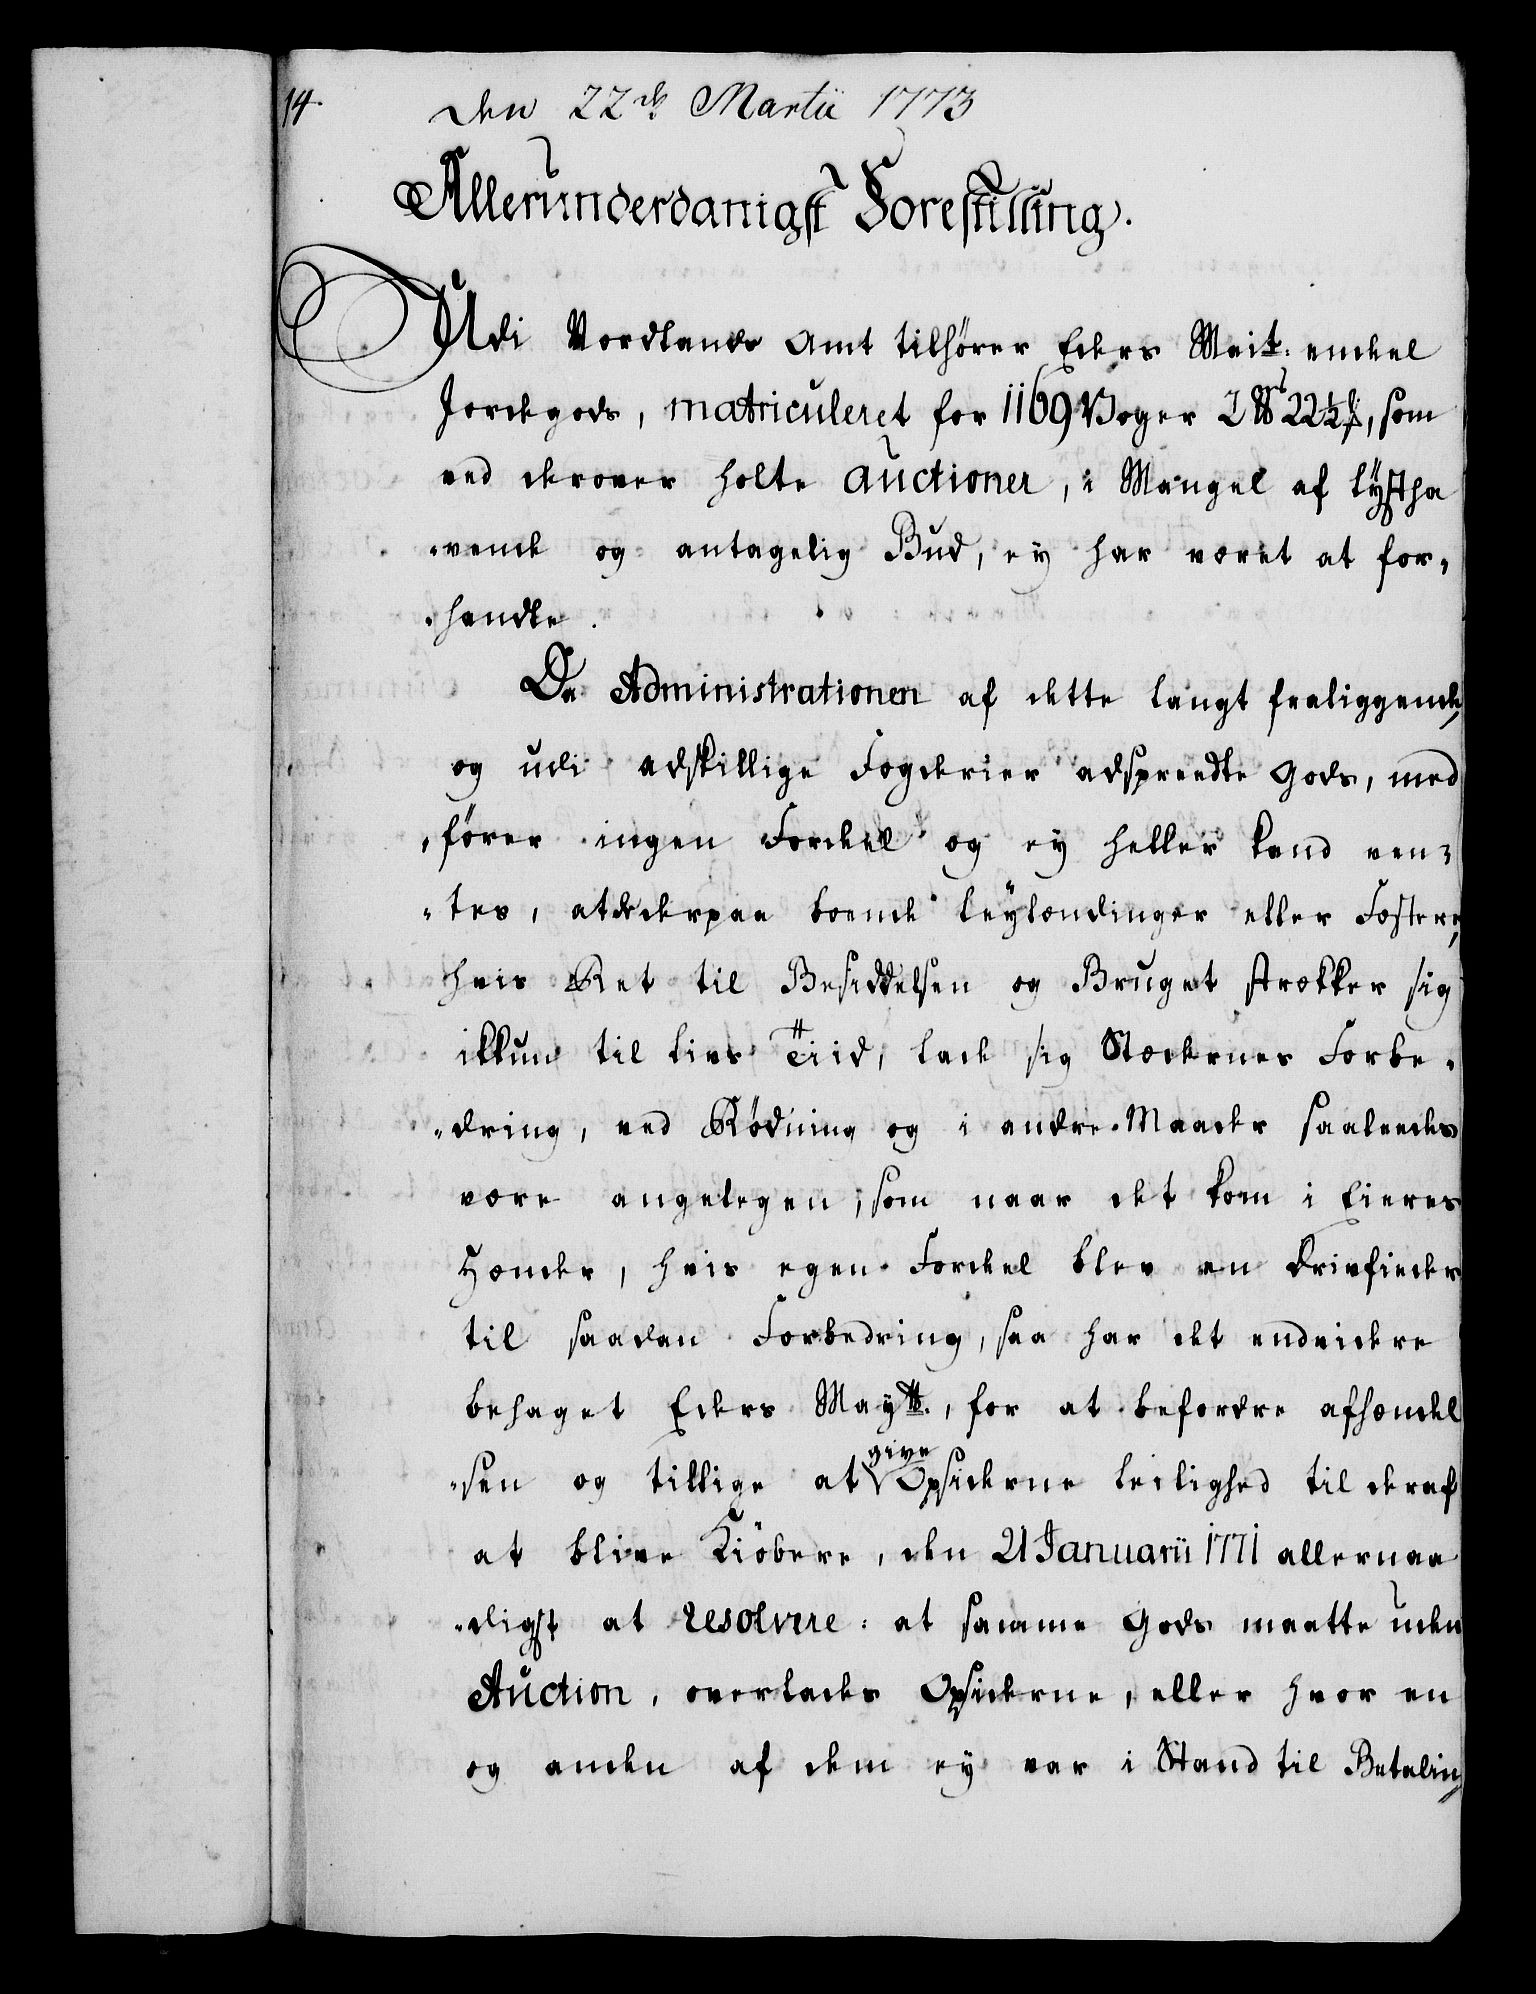 14.
Den 22de Martii 1773
Allerunderdanigst Forestilling.
Udi Nordlands Amt tilhører Eders Mait: endeel
Jordegods, matriculeret for 1169 Voger 2 22½, som
ved derover holte Auctioner, i Mangel af lystha
„vende og antagelig Bud, ey har været at for„
„handle.
Da Administrationen af dette langt fraliggende,
og udi adskillige Fogderier adspreedte Gods, med
„fører ingen Fordeel og ey heller kand ven„
„tes, at derpaa boende Leylændinger eller Fæstere,
hvis Ret til Besiddelsen og Bruget strækker sig
ikkun til Livs Tiid, lade sig Stædernes Forbe„
„dring, ved Rødning og i andre Maader saaleedes
være angelegen, som naar det kom i Eieres
Hænder, hvis egen Fordeel blev en Drivfieder
til saadan Forbedring, saa har det endvidere
behaget Eders Maytt., for at befordre afhændel
„sen og tillige at give Opsiderne Leilighed til deraf
at blive Kiöbere, den 21 Januarii 1771 allernaa
„digst at resolvere: at samme Gods maatte uden
Auction, overlades Opsiderne, eller hvor en
og anden af dem ey var i Stand til Betaling